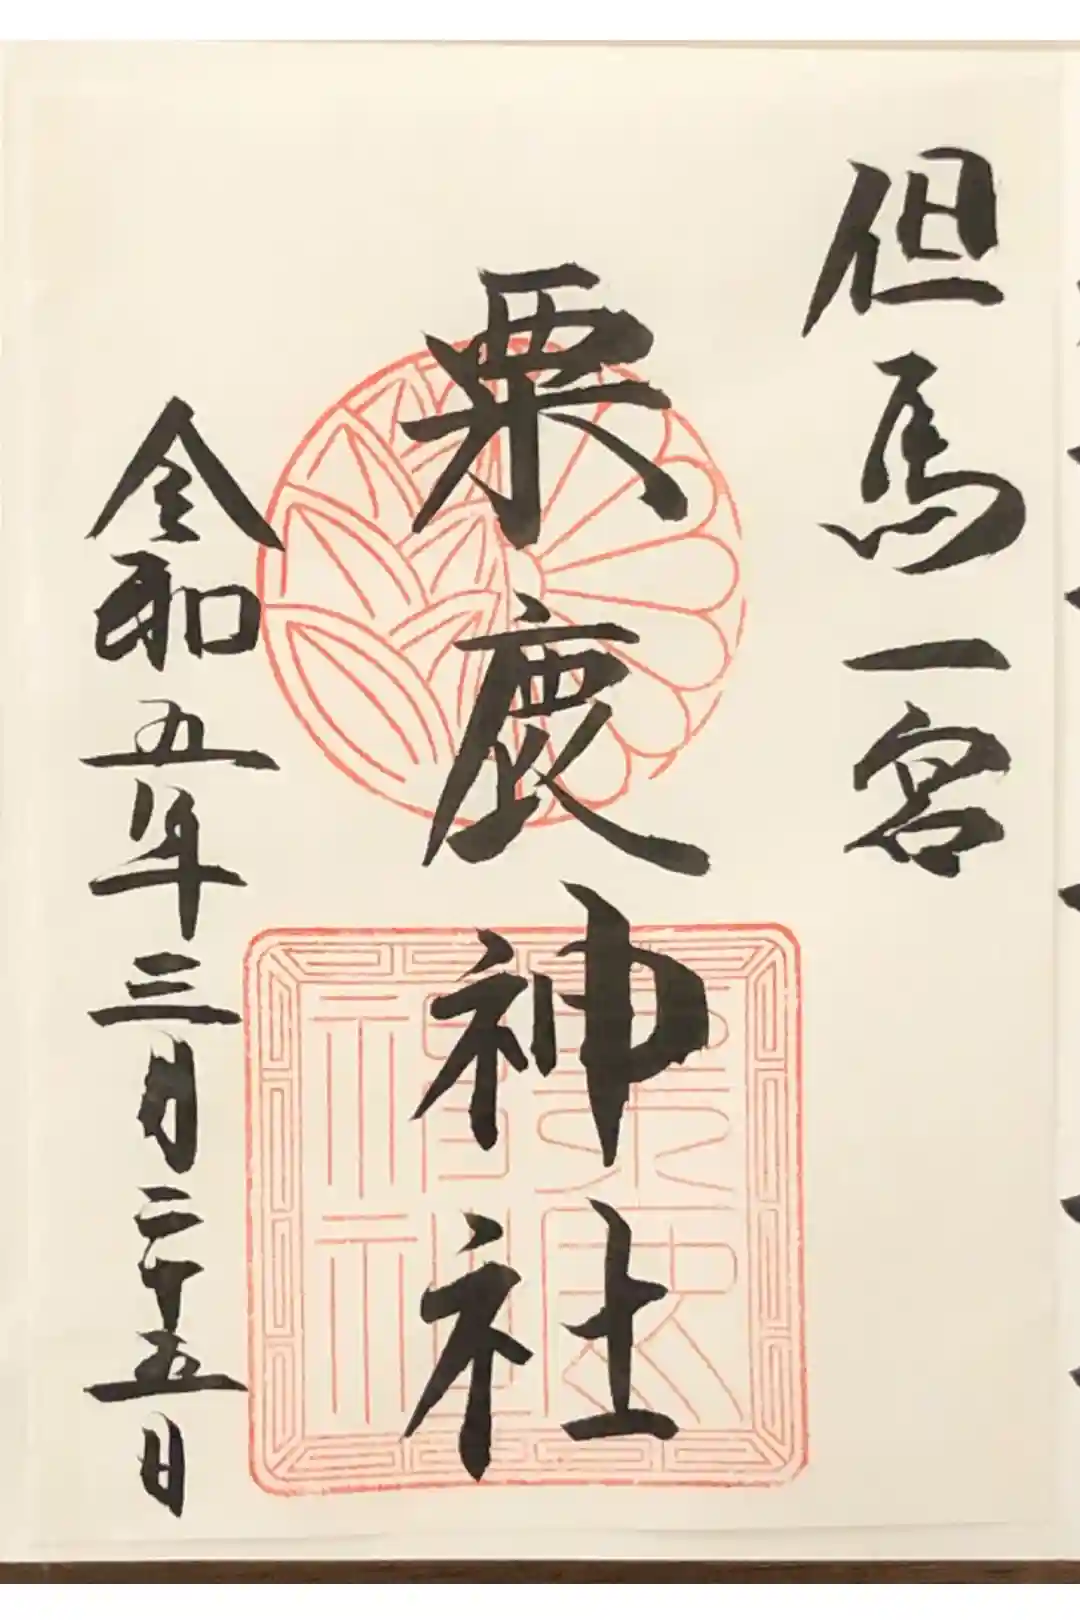 但馬一宮
粟鹿神社
令和五年三月二十五日